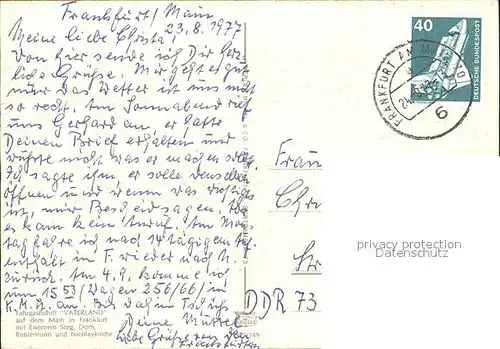 Frankfurt/Main
23.8.1977
Meine liebe Christa!
Von hier sende ich Dir herz-
liche Grüsse. Mir geht es gut
nur das Wetter ist uns nicht
so recht. Am Sonnabend rief
uns Gerhard an, er hatte
Deinen Brief erhalten und
wußte nicht was er machen soll.
Ich sagte ihm er solle
und wenn was wichtiges
ist, mir Bescheid sagen.
es kam kein Anruf. Am Mon-
tag fahre ich nach 14 tägigem Auf-
enthalt in F. wieder nach
zurück. Am 4.9. komme ich
um 15 53/Wagen 256/66/ in
K.M.St. an. Bis dahin Tschüß
Deine Mutti
Liebe Grüße von den
Frankfurtern
Fahrgastschiff "VATERLAND"
auf dem Main in Frankfurt
mit Eisernem Steg, Dom,
Rententurm und Nicolaykirche
40
DEUTSCHE BUNDESPOST
FRANKFURT AM MAIN
6
Frau
Chr
Str
DDR 73
privacy protection
Datenschutz